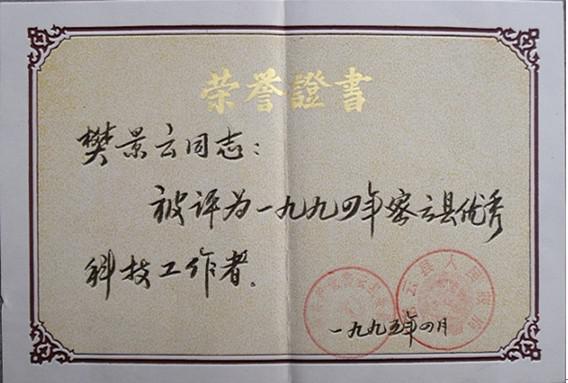 荣誉證書
樊景云同志：
被评为一九九四年密云县优秀
科技工作者。
一九九五年四月